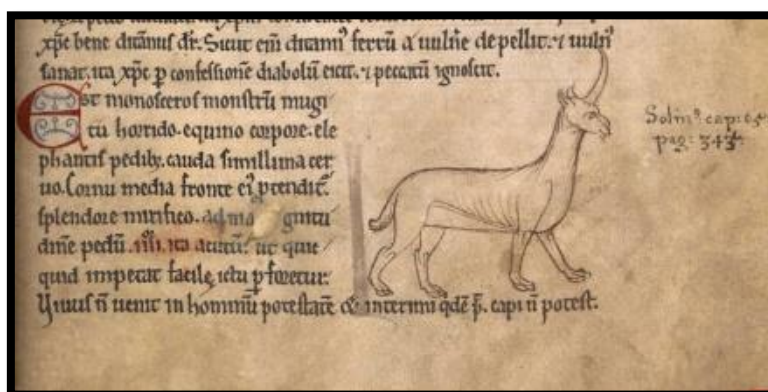 xp̄e bene ditanus dr̄. Sicut em̄ ditann᷒ ferrū a uulne depellit. ⁊ uuln᷒
sanat. ita xp̄c p confessionē diabolū eicit. ⁊ peccatū ignoscit.
Est monoceros monstrū mugi
tu horrido. equino corpore. ele
phantis pedib;. cauda simillima cer
uo. Cornu media fronte ei᷒ ptendit᷒.
splendore mirifico. ad ma gnitu
dinē pedū. iiii. ita acutū. ut quic
quid impetat facile ictu pforetur.
Viuus n̄ uenit in hominū potestatē & interimi qdē p̄. capi n̄ potest.
Solin᷒. cap: 65
pag: 343